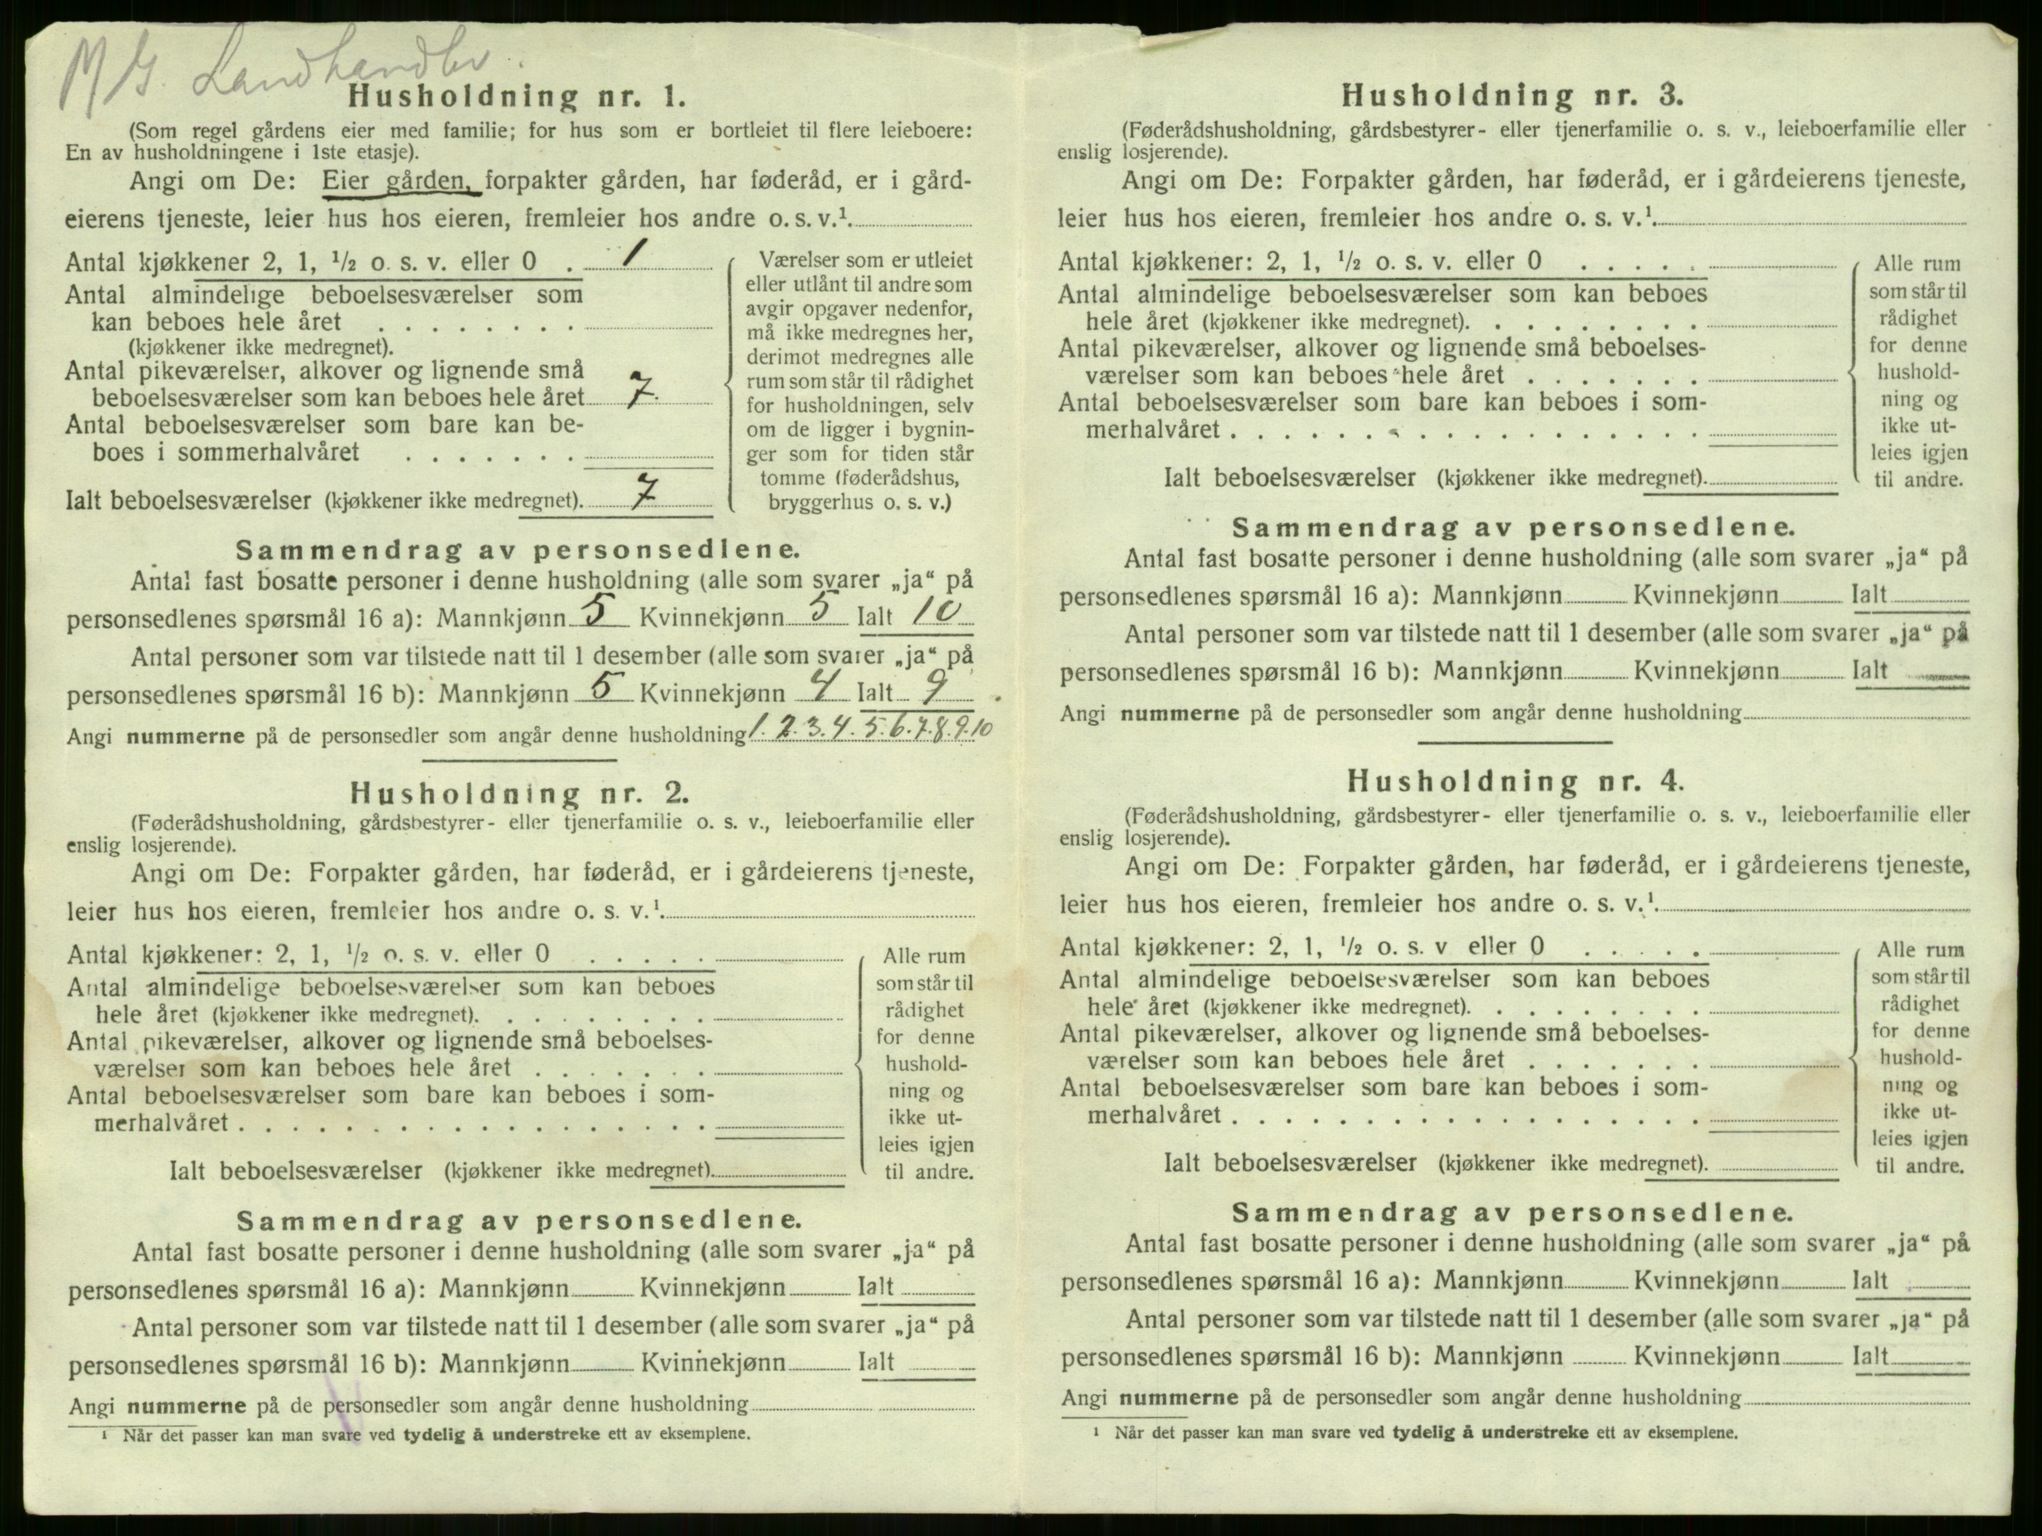 M/G. Landhandler.
Husholdning nr. 1.
(Som regel gårdens eier med familie; for hus som er bortleiet til flere leieboere:
En av husholdningene i 1ste etasje).
Angi om De: Eier gården, forpakter gården, har føderåd, er i gård-
eierens tjeneste, leier hus hos eieren, fremleier hos andre o. s. v.¹
Antal kjøkkener 2, 1, ½ o. s. v. eller 0 . 1
Antal almindelige beboelsesværelser som
kan beboes hele året . . . . . . . .
(kjøkkener ikke medregnet).
Antal pikeværelser, alkover og lignende små
beboelsesværelser som kan beboes hele året 7
Antal beboelsesværelser som bare kan be-
boes i sommerhalvåret . . . . . . .
Ialt beboelsesværelser (kjøkkener ikke medregnet). 7
Værelser som er utleiet
eller utlånt til andre som
avgir opgaver nedenfor,
må ikke medregnes her,
derimot medregnes alle
rum som står til rådighet
for husholdningen, selv
om de ligger i bygnin-
ger som for tiden står
tomme (føderådshus,
bryggerhus o. s. v.)
Sammendrag av personsedlene.
Antal fast bosatte personer i denne husholdning (alle som svarer „ja“ på
personsedlenes spørsmål 16 a): Mannkjønn 5 Kvinnekjønn 5 Ialt 10
Antal personer som var tilstede natt til 1 desember (alle som svarer „ja“ på
personsedlenes spørsmål 16 b): Mannkjønn 5 Kvinnekjønn 4 Ialt 9
Angi nummerne på de personsedler som angår denne husholdning 1. 2. 3. 4. 5. 6. 7. 8. 9. 10
Husholdning nr. 2.
(Føderådshusholdning, gårdsbestyrer- eller tjenerfamilie o. s. v., leieboerfamilie eller
enslig losjerende).
Angi om De: Forpakter gården, har føderåd, er i gårdeierens tjeneste,
leier hus hos eieren, fremleier hos andre o. s. v.¹
Antal kjøkkener: 2, 1, ½ o. s. v. eller 0 . . . . .
Antal almindelige beboelsesværelser som kan beboes
hele året (kjøkkener ikke medregnet). . . . . . . . .
Antal pikeværelser, alkover og lignende små beboelses-
værelser som kan beboes hele året . . . . . . .
Antal beboelsesværelser som bare kan beboes i som-
merhalvåret . . . . . . . . . . . . . . . . .
Ialt beboelsesværelser (kjøkkener ikke medregnet).
Alle rum
som står til
rådighet
for denne
hushold-
ning og
ikke ut-
leies igjen
til andre.
Sammendrag av personsedlene.
Antal fast bosatte personer i denne husholdning (alle som svarer „ja“ på
personsedlenes spørsmål 16 a): Mannkjønn Kvinnekjønn Ialt
Antal personer som var tilstede natt til 1 desember (alle som svarer „ja“ på
personsedlenes spørsmål 16 b): Mannkjønn Kvinnekjønn Ialt
Angi nummerne på de personsedler som angår denne husholdning
¹ Når det passer kan man svare ved tydelig å understreke ett av eksemplene.
Husholdning nr. 3.
(Føderådshusholdning, gårdsbestyrer- eller tjenerfamilie o. s. v., leieboerfamilie eller
enslig losjerende).
Angi om De: Forpakter gården, har føderåd, er i gårdeierens tjeneste,
leier hus hos eieren, fremleier hos andre o. s. v.¹
Antal kjøkkener: 2, 1, ½ o. s. v. eller 0 . . . . .
Antal almindelige beboelsesværelser som kan beboes
hele året (kjøkkener ikke medregnet). . . . . . . . .
Antal pikeværelser, alkover og lignende små beboelses-
værelser som kan beboes hele året . . . . . . .
Antal beboelsesværelser som bare kan beboes i som-
merhalvåret . . . . . . . . . . . . . . . . .
Ialt beboelsesværelser (kjøkkener ikke medregnet).
Alle rum
som står til
rådighet
for denne
hushold-
ning og
ikke ut-
leies igjen
til andre.
Sammendrag av personsedlene.
Antal fast bosatte personer i denne husholdning (alle som svarer „ja“ på
personsedlenes spørsmål 16 a): Mannkjønn Kvinnekjønn Ialt
Antal personer som var tilstede natt til 1 desember (alle som svarer „ja“ på
personsedlenes spørsmål 16 b): Mannkjønn Kvinnekjønn Ialt
Angi nummerne på de personsedler som angår denne husholdning
Husholdning nr. 4.
(Føderådshusholdning, gårdsbestyrer- eller tjenerfamilie o. s. v., leieboerfamilie eller
enslig losjerende).
Angi om De: Forpakter gården, har føderåd, er i gårdeierens tjeneste,
leier hus hos eieren, fremleier hos andre o. s. v.¹
Antal kjøkkener: 2, 1, ½ o. s. v eller 0 . . . . .
Antal almindelige beboelsesværelser som kan beboes
hele året (kjøkkener ikke medregnet). . . . . . . . .
Antal pikeværelser, alkover og lignende små beboelses-
værelser som kan beboes hele året . . . . . . .
Antal beboelsesværelser som bare kan beboes i som-
merhalvåret . . . . . . . . . . . . . . . . .
Ialt beboelsesværelser (kjøkkener ikke medregnet).
Alle rum
som står til
rådighet
for denne
hushold-
ning og
ikke ut-
leies igjen
til andre.
Sammendrag av personsedlene.
Antal fast bosatte personer i denne husholdning (alle som svarer „ja“ på
personsedlenes spørsmål 16 a): Mannkjønn Kvinnekjønn Ialt
Antal personer som var tilstede natt til 1 desember (alle som svarer „ja“ på
personsedlenes spørsmål 16 b): Mannkjønn Kvinnekjønn Ialt
Angi nummerne på de personsedler som angår denne husholdning
¹ Når det passer kan man svare ved tydelig å understreke ett av eksemplene.